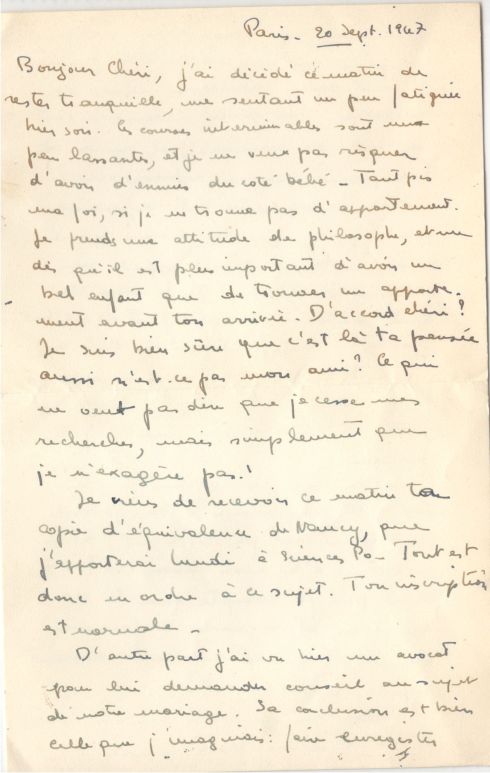 Paris - 20 Sept. 1947
Bonjour Chéri, j'ai décidé ce matin de
rester tranquille, me sentant un peu fatiguée
hier soir. Ces courses interminables sont un
peu lassantes, et je ne veux pas risquer
d'avoir d'ennuis du coté bébé - Tant pis
ma foi, si je ne trouve pas d'appartement.
Je prends une attitude de philosophe, et me
dis qu'il est plus important d'avoir un
bel enfant que de trouver un apparte-
ment avant ton arrivée - D'accord chéri?
Je suis bien sûre que c'est là ta pensée
aussi n'est-ce pas mon ami? Ce qui
ne veut pas dire que je cesse mes
recherches, mais simplement que
je n'exagère pas!
Je viens de recevoir ce matin ta
copie d'équivalence de Nancy, que
j'apporterai lundi à Sciences Po - Tout est
donc en ordre à ce sujet. Ton inscription
est normale -
D'autre part j'ai vu hier un avocat
pour lui demander conseil au sujet
de notre mariage. Sa conclusion est bien
celle que j'imaginais: faire enregistrer